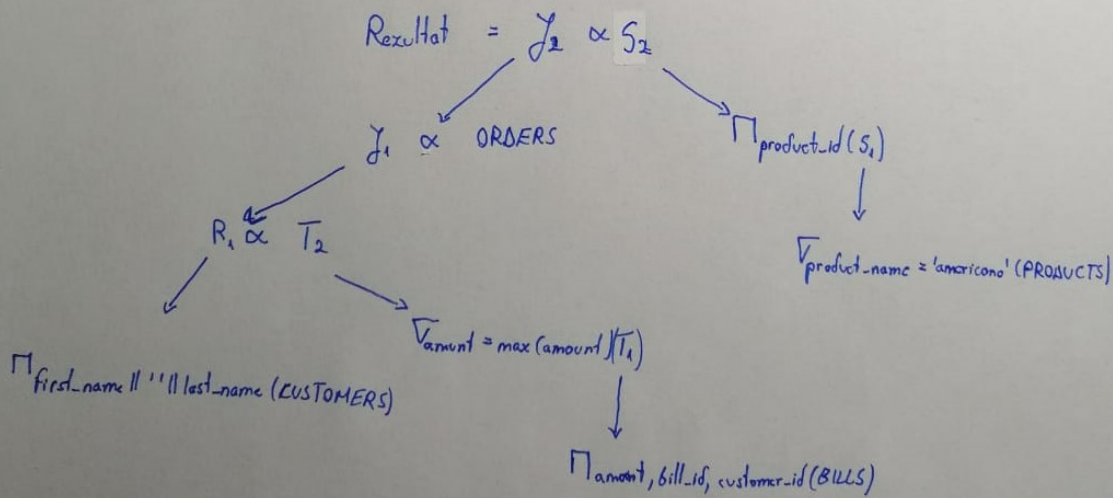 Rezultat = J₂ ∝ S₂
J₁ ∝ ORDERS
Π product_id (S₁)
R₁ ∝ T₂
σ product_name = 'americano' (PRODUCTS)
σ amount = max (amount)(T₁)
Π first_name || ' ' || last_name (CUSTOMERS)
Π amount, bill_id, customer_id (BILLS)